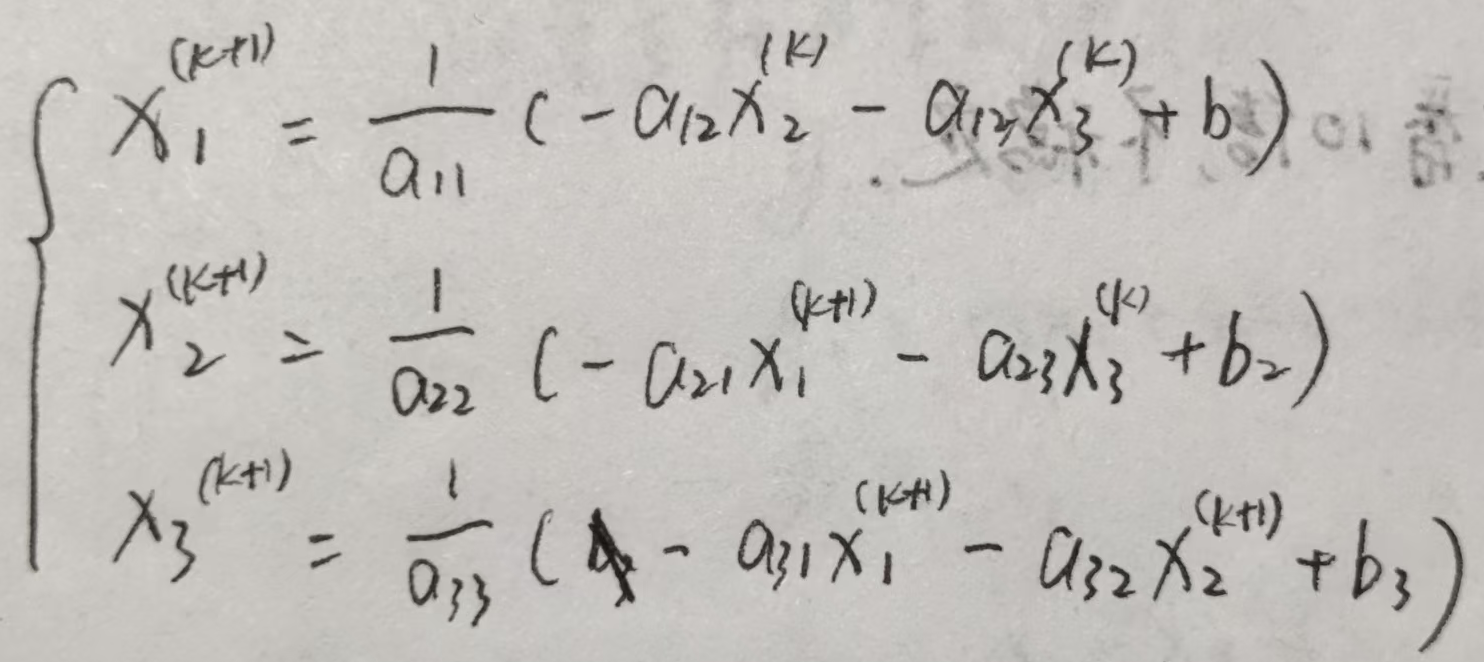 x₁^(k+1) = 1/a₁₁ (-a₁₂x₂^(k) - a₁₂x₃^(k) + b)
x₂^(k+1) = 1/a₂₂ (-a₂₁x₁^(k+1) - a₂₃x₃^(k) + b₂)
x₃^(k+1) = 1/a₃₃ (- a₃₁x₁^(k+1) - a₃₂x₂^(k+1) + b₃)